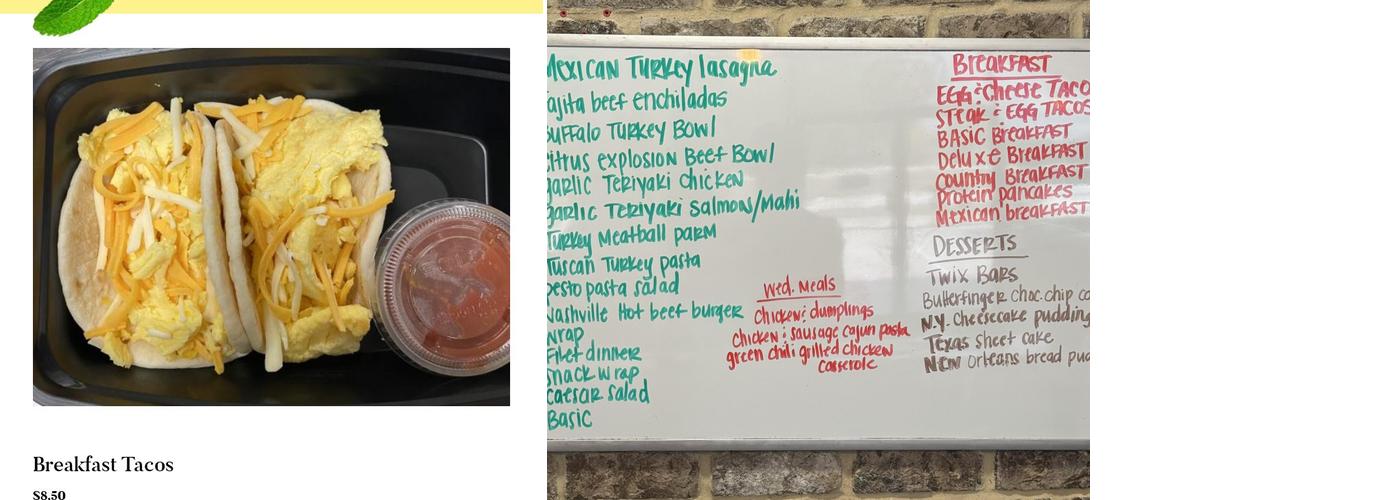 Breakfast Tacos
$8.50
Mexican Turkey lasagna
fajita beef enchiladas
Buffalo Turkey Bowl
citrus explosion Beef Bowl
garlic Teriyaki chicken
garlic Teriyaki Salmon/Mahi
Turkey Meatball parm
Tuscan Turkey pasta
pesto pasta salad
Nashville Hot beef burger
wrap
Filet dinner
snack wrap
caesar salad
Basic
Wed. Meals
chicken & dumplings
chicken & sausage cajun pasta
green chili grilled chicken
casserole
BREAKFAST
EGG & Cheese TACO
STEAK & EGG TACOS
BASIC BREAKFAST
Deluxe BREAKFAST
Country BREAKFAST
Protein pancakes
Mexican breakFAST
DESSERTS
Twix Bars
Butterfinger choc.chip co
N.Y. Cheesecake pudding
Texas sheet cake
New Orleans bread pud